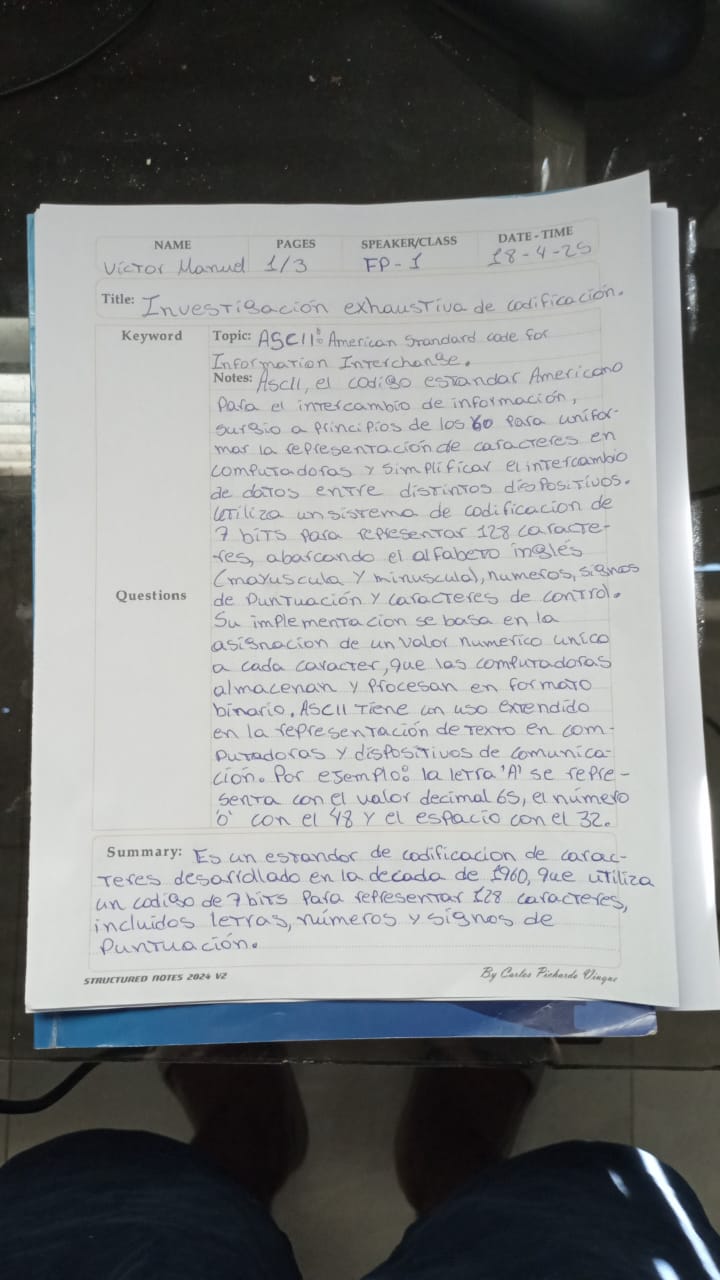 NAME PAGES SPEAKER/CLASS DATE - TIME
Víctor Manuel 1/3 FP-1 18-4-25
Title: Investigación exhaustiva de codificación.
Keyword
Topic: ASCII: American Standard code for
Information Interchange.
Notes: Ascii, el codigo estandar Americano
Para el intercambio de información,
surgio a principios de los 60 para unifor-
mar la representación de caracteres en
computadoras y simplificar el intercambio
de datos entre distintos dispositivos.
Utiliza un sistema de codificacion de
7 bits para representar 128 caracte-
res, abarcando el alfabeto inglés
(mayuscula y minuscula), numeros, signos
Questions
de puntuación y caracteres de control.
Su implementacion se basa en la
asignacion de un valor numerico unico
a cada caracter, que las computadoras
almacenan y procesan en formato
binario. ASCII tiene un uso extendido
en la representación de texto en com-
putadoras y dispositivos de comunica-
ción. Por ejemplo: la letra 'A' se repre-
senta con el valor decimal 65, el número
'0' con el 48 y el espacio con el 32.
Summary: Es un estandar de codificacion de carac-
teres desarrollado en la decada de 1960, que utiliza
un codigo de 7 bits para representar 128 caracteres,
incluidos letras, números y signos de
puntuación.
STRUCTURED NOTES 2024 V2
By Carlos Pichardo Vinque